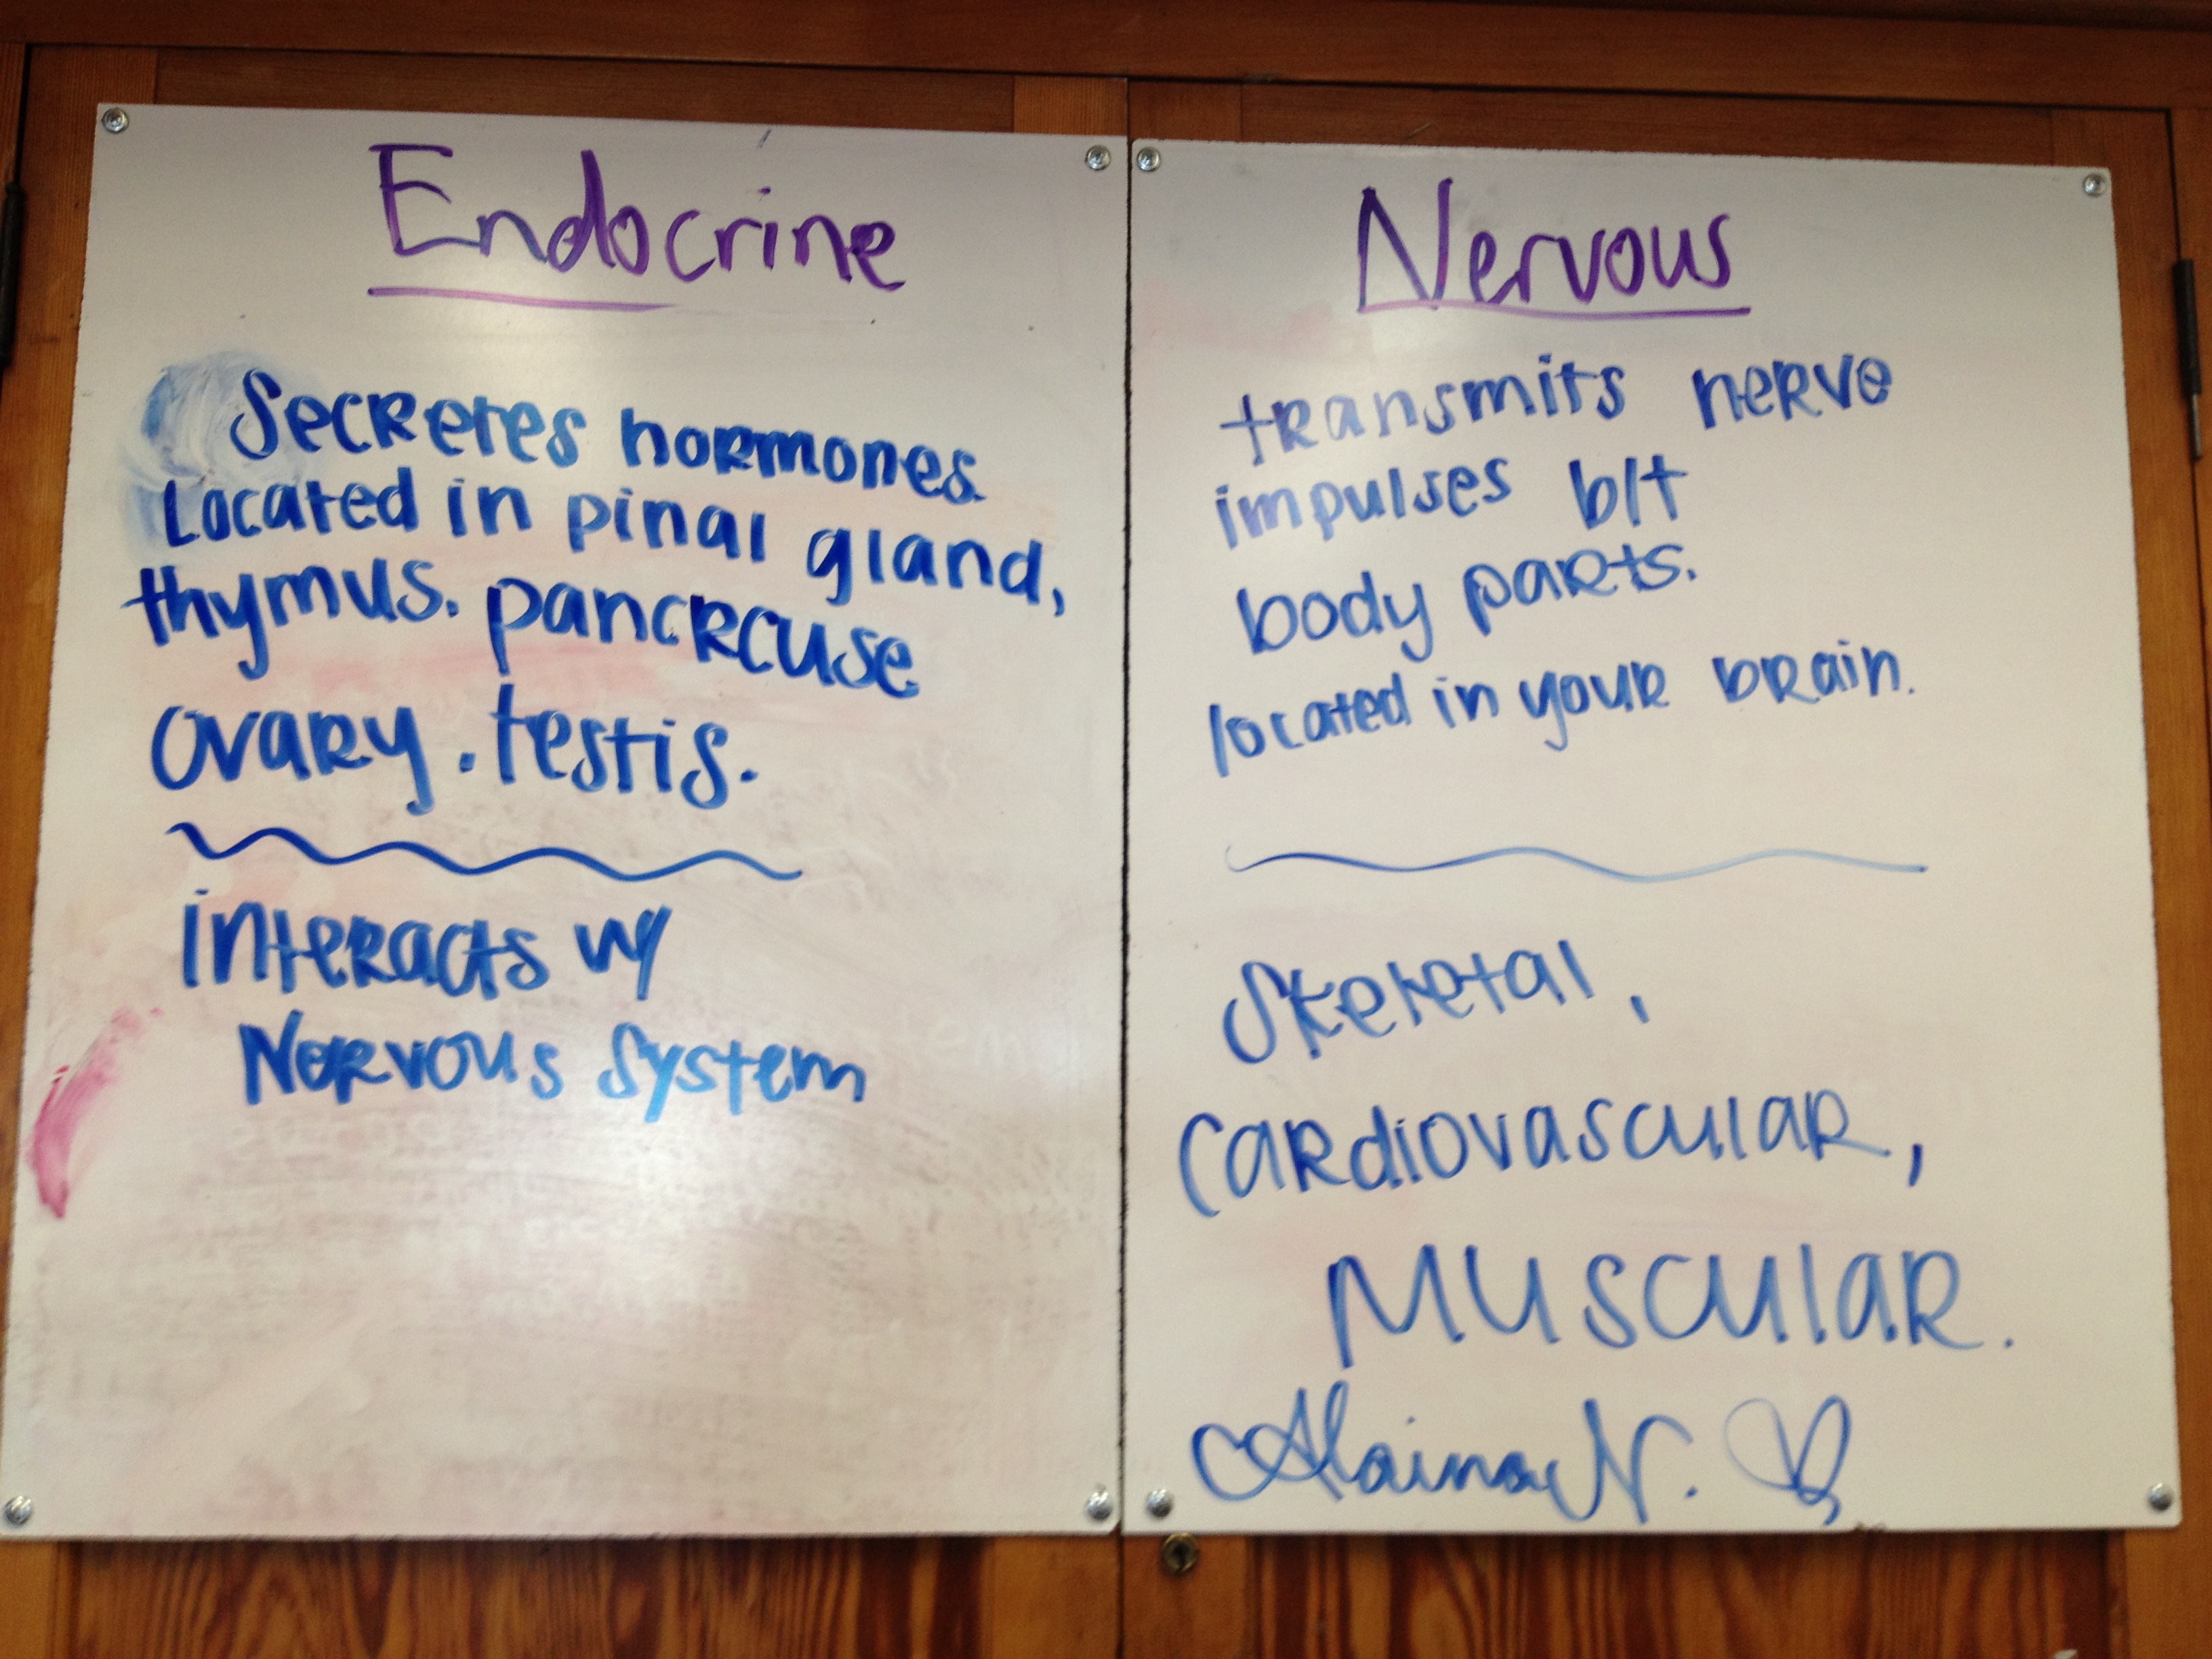 Endocrine
Secretes hormones.
Located in pinal gland,
thymus. pancrcuse
ovary. testis.
interacts w/
Nervous System
Nervous
transmits nerve
impulses b/t
body parts.
located in your brain.
Skeletal,
cardiovascular,
Muscular.
Alaina N.